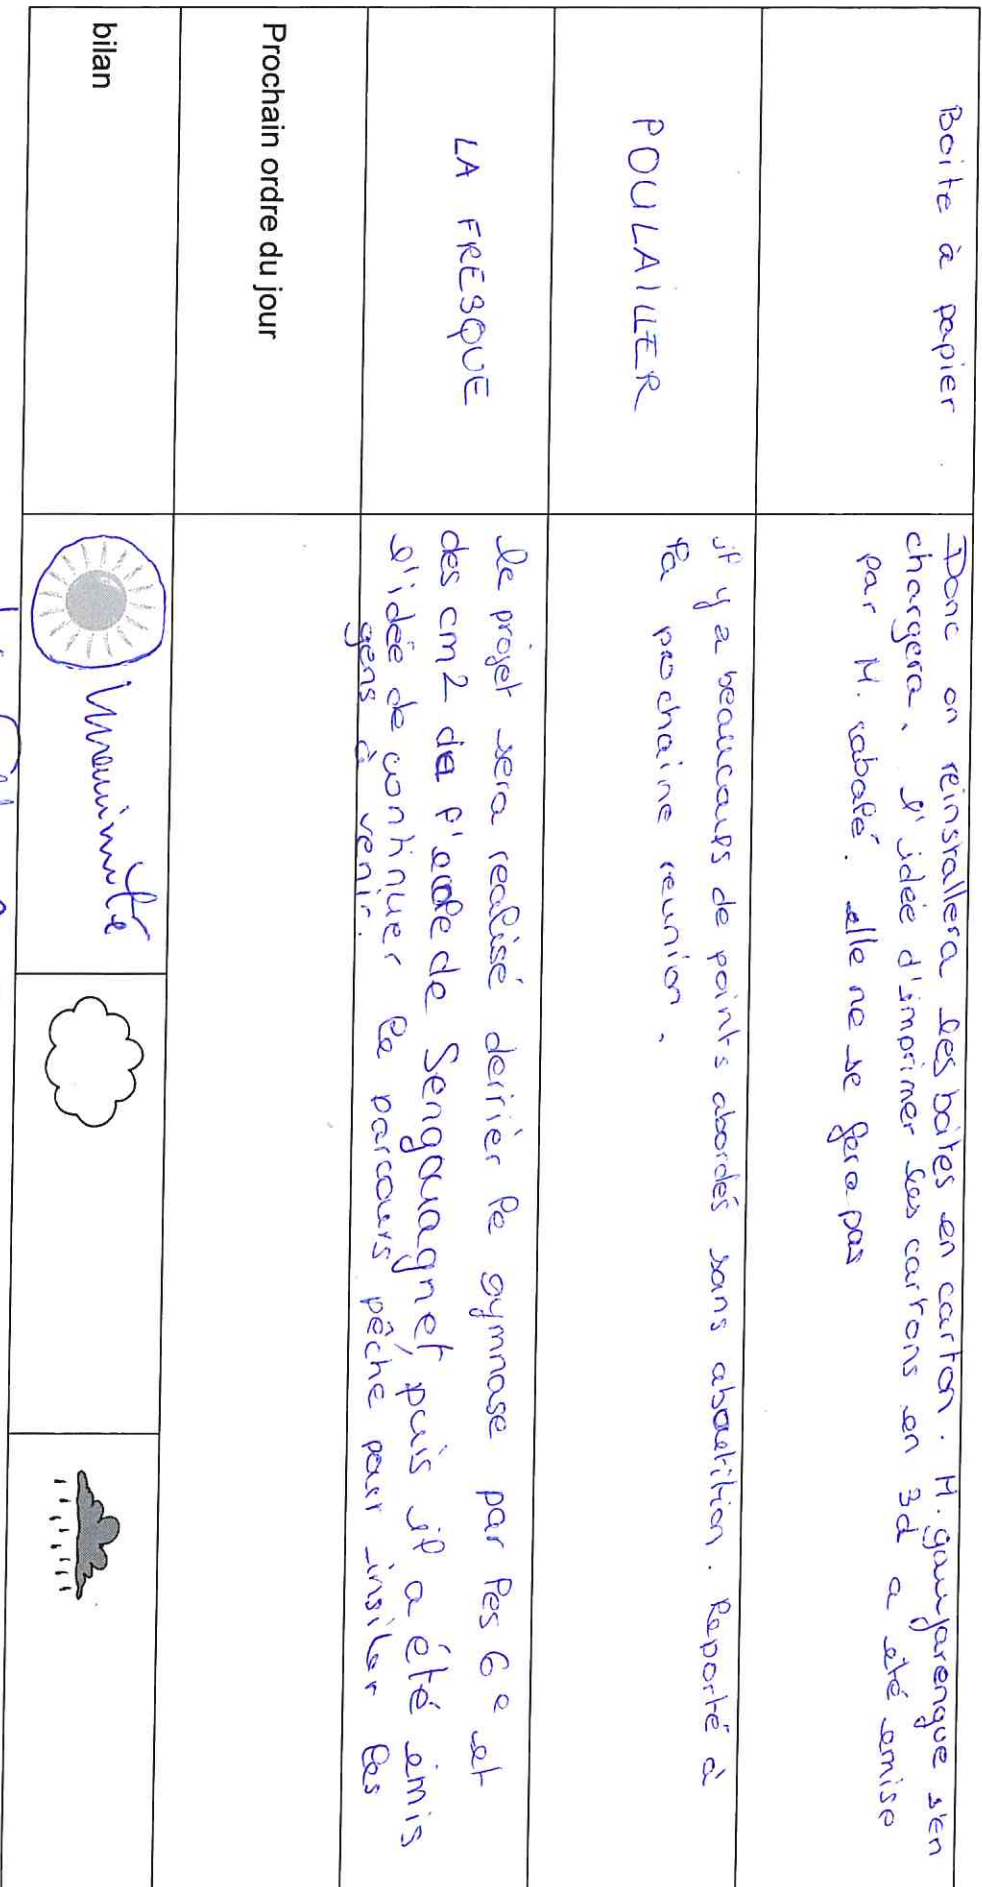 Boite à papier
Donc on réinstallera les boites en carton. M. gaujarengue s'en
chargera. l'idée d'imprimer les cartons en 3d a été émise
par M. sabalé. elle ne se fera pas
POULAILLER
il y a beaucoups de points abordés sans aboutition. Reporté à
la prochaine reunion.
LA FRESQUE
le projet sera realisé derrier le gymnase par les 6e et
des cm2 de l'ecole de Sengouagnet, puis il a été émis
l'idée de continuer le parcours pêche pour insiter les
gens à venir.
Prochain ordre du jour
bilan
Unanimité